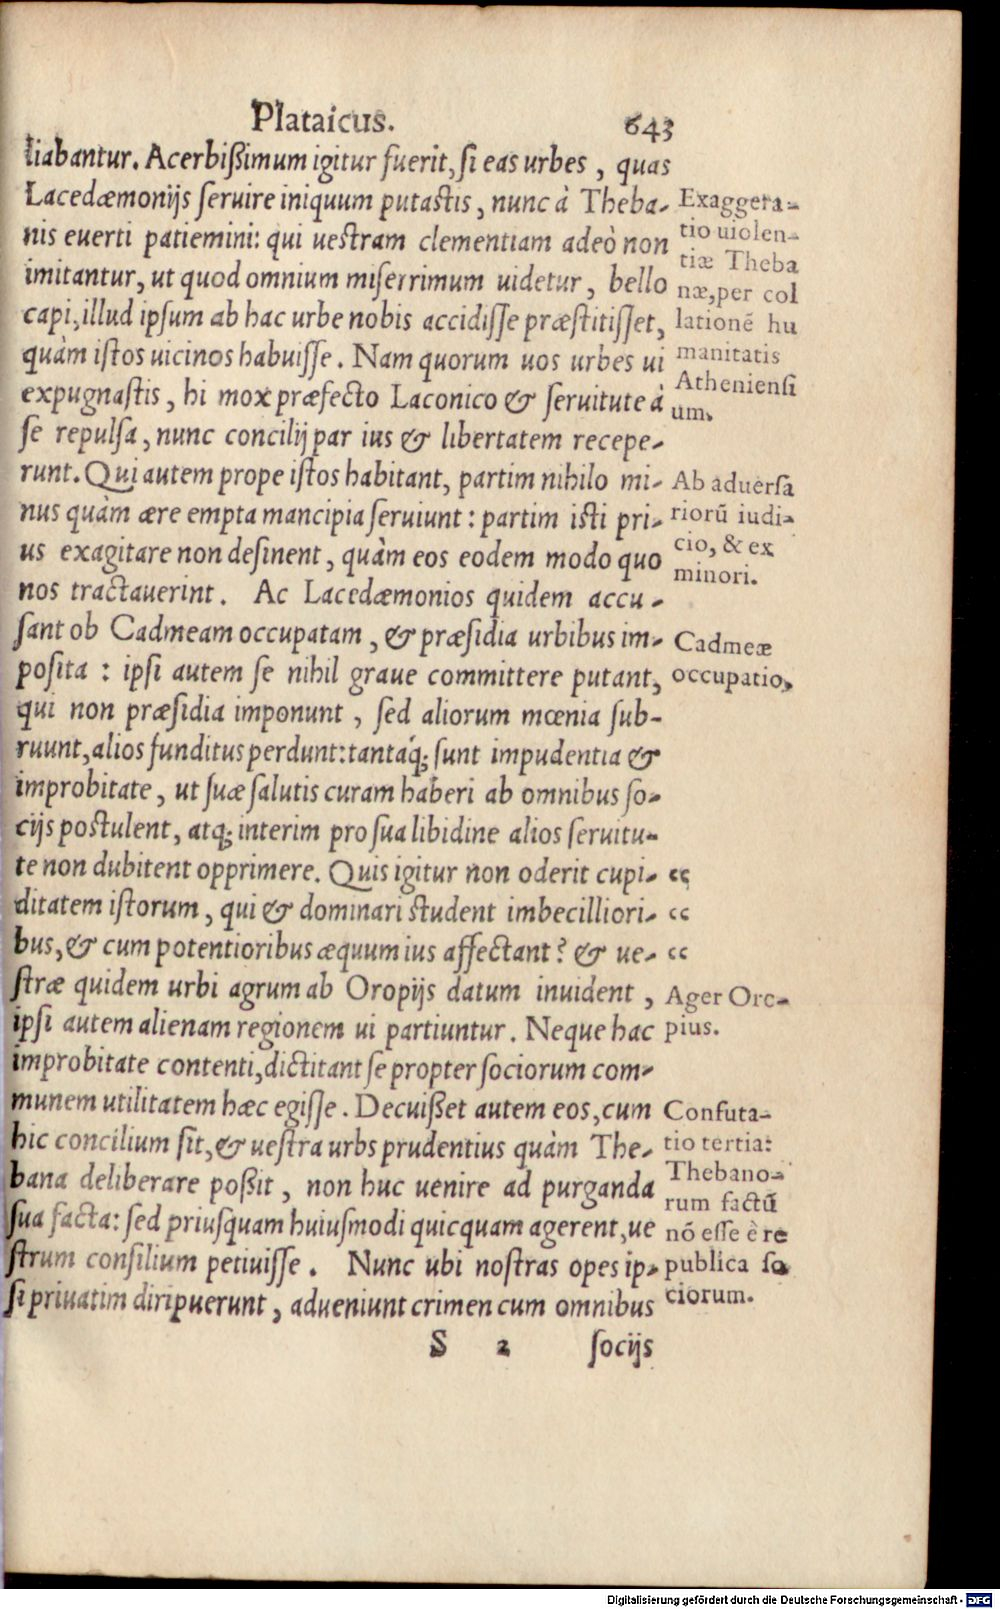 Plataicus. 643
liabantur. Acerbißimum igitur fuerit, si eas urbes, quas
Lacedæmonijs seruire iniquum putastis, nunc à Theba-
nis euerti patiemini: qui uestram clementiam adeò non
imitantur, ut quod omnium miserrimum uidetur, bello
capi, illud ipsum ab hac urbe nobis accidisse præstitisset,
quàm istos uicinos habuisse. Nam quorum uos urbes ui
expugnastis, hi mox præfecto Laconico & seruitute à
se repulsa, nunc concilij par ius & libertatem recepe-
runt. Qui autem prope istos habitant, partim nihilo mi-
nus quàm ære empta mancipia seruiunt: partim isti pri-
us exagitare non desinent, quàm eos eodem modo quo
nos tractauerint. Ac Lacedæmonios quidem accu-
sant ob Cadmeam occupatam, & præsidia urbibus im-
posita: ipsi autem se nihil graue committere putant,
qui non præsidia imponunt, sed aliorum mœnia sub-
ruunt, alios funditus perdunt: tantáq; sunt impudentia &
improbitate, ut suæ salutis curam haberi ab omnibus so-
cijs postulent, atq; interim pro sua libidine alios seruitu-
te non dubitent opprimere. Quis igitur non oderit cupi-
ditatem istorum, qui & dominari student imbecilliori-
bus, & cum potentioribus æquum ius affectant? & ue-
stræ quidem urbi agrum ab Oropijs datum inuident,
ipsi autem alienam regionem ui partiuntur. Neque hac
improbitate contenti, dictitant se propter sociorum com-
munem utilitatem hæc egisse. Decuißet autem eos, cum
hic concilium sit, & uestra urbs prudentius quàm The-
bana deliberare poßit, non huc uenire ad purganda
sua facta: sed priusquam huiusmodi quicquam agerent, ue
strum consilium petiuisse. Nunc ubi nostras opes ip-
si priuatim diripuerunt, adueniunt crimen cum omnibus
S 2 socijs
Exaggera-
tio uiolen-
tiæ Theba
næ, per col
lationē hu
manitatis
Atheniensi
um.
Ab aduersa
riorū iudi-
cio, & ex
minori.
Cadmeæ
occupatio,
“
“
“
Ager Oro-
pius.
Confuta-
tio tertia:
Thebano-
rum factū
nō esse è re
publica so
ciorum.
Digitalisierung gefördert durch die Deutsche Forschungsgemeinschaft - DFG